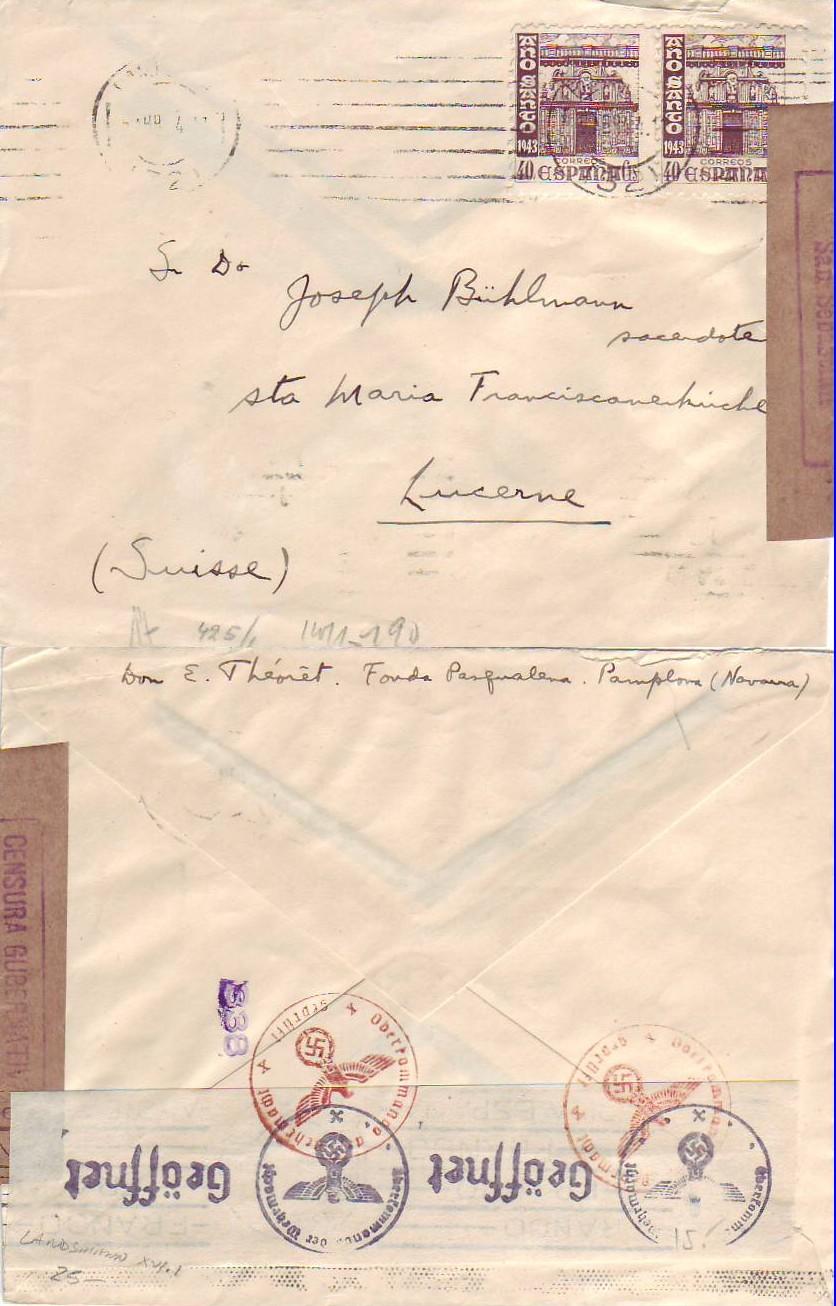 AÑO SANTO 1943
CORREOS
40 ESPAÑA
AÑO SANTO 1943
CORREOS
40 ESPAÑA
SAN SEBASTIAN
Sr Do
Joseph Bühlmann
sacerdote
sta Maria Franciscanerkirche
Lucerne
(Suisse)
425/1
Don E. Théorêt. Fonda Pasqualena. Pamplona (Navarra)
CENSURA GUBERNATIV
338
Oberkommando
geprüft
Oberkommando
geprüft
Geöffnet
Oberkommando der Wehrmacht
Geöffnet
Oberkomm
Wehrmacht
15.
25-